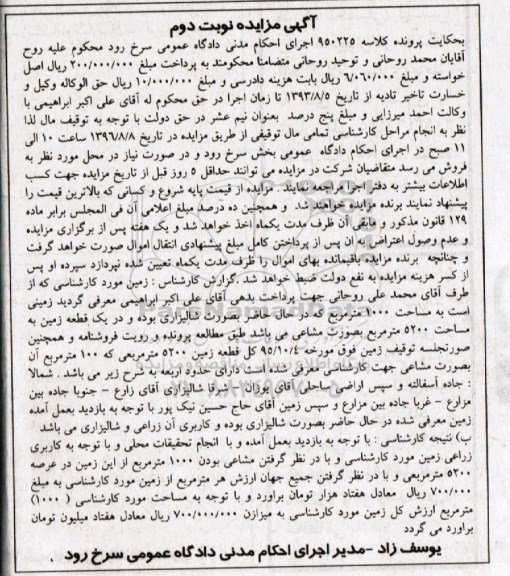 آگهی مزایده نوبت دوم
بحکایت پرونده کلاسه ۹۵۰۲۲۵ اجرای احکام مدنی دادگاه عمومی سرخ رود محکوم علیه روح
آقایان محمد روحانی و توحید روحانی متضامنا محکومند به پرداخت مبلغ ۲۰۰/۰۰۰/۰۰۰ ریال اصل
خواسته و مبلغ ۶/۰۶۰/۰۰۰ ریال بابت هزینه دادرسی و مبلغ ۱۰/۰۰۰/۰۰۰ ریال حق الوکاله وکیل و
خسارت تاخیر تادیه از تاریخ ۱۳۹۳/۸/۵ تا زمان اجرا در حق محکوم له آقای علی اکبر ابراهیمی با
وکالت احمد میرزایی و مبلغ پنج درصد بعنوان نیم عشر در حق دولت با توجه به توقیف مال لذا
نظر به انجام مراحل کارشناسی تمامی مال توقیفی از طریق مزایده در تاریخ ۱۳۹۶/۸/۸ ساعت ۱۰ الی
۱۱ صبح در اجرای احکام دادگاه عمومی بخش سرخ رود و در صورت نیاز در محل مورد نظر به
فروش می رسد متقاضیان شرکت در مزایده می توانند حداقل ۵ روز قبل از تاریخ مزایده جهت کسب
اطلاعات بیشتر به دفتر اجرا مراجعه نمایند. مزایده از قیمت پایه شروع و کسانی که بالاترین قیمت را
پیشنهاد نمایند برنده مزایده خواهند شد و همچنین ده درصد مبلغ اعلامی آن فی المجلس برابر ماده
۱۲۹ قانون مذکور و مابقی آن ظرف مدت یکماه اخذ خواهد شد و یک هفته پس از برگزاری مزایده
و عدم وصول اعتراض به ان پس از پرداختن کامل مبلغ پیشنهادی انتقال اموال صورت خواهد گرفت
و چنانچه برنده مزایده باقیمانده بهای اموال را ظرف مدت یکماه تعیین شده نپردازد سپرده او پس
از کسر هزینه مزایده به نفع دولت ضبط خواهد شد .گزارش کارشناس : زمین مورد کارشناسی که از
طرف آقای محمد علی روحانی جهت پرداخت بدهی آقای علی اکبر ابراهیمی معرفی گردید زمینی
است به مساحت ۱۰۰۰ مترمربع که در حال حاضر بصورت شالیزاری بوده و در یک قطعه زمین به
مساحت ۵۲۰۰ مترمربع بصورت مشاعی می باشد طبق مطالعه پرونده و رویت فروشنامه و همچنین
صورتجلسه توقیف زمین فوق مورخه ۹۵/۱۰/۴ کل قطعه زمین ۵۲۰۰ مترمربعی که ۱۰۰ مترمربع آن
بصورت مشاعی جهت کارشناسی معرفی شده است دارای حدود اربعه به شرح زیر می باشد . شمالا
: جاده آسفالته و سپس اراضی ساحلی آقای یوزان – شرقا شالیزاری آقای زارع – جنوبا جاده بین
مزارع – غربا جاده بین مزارع و سپس زمین آقای حاج حسین نیک پور با توجه به بازدید بعمل آمده
زمین معرفی شده در حال حاضر بصورت شالیزاری بوده و کاربری آن زراعی و شالیزاری می باشد
ب) نتیجه کارشناسی : با توجه به بازدید بعمل آمده و با انجام تحقیقات محلی و با توجه به کاربری
زراعی زمین مورد کارشناسی و با در نظر گرفتن مشاعی بودن ۱۰۰۰ مترمربع از این زمین در عرصه
۵۲۰۰ مترمربعی و با در نظر گرفتن جمیع جهان ارزش هر مترمربع از زمین مورد کارشناسی به مبلغ
۷۰۰/۰۰۰ ریال معادل هفتاد هزار تومان براورد و با توجه به مساحت مورد کارشناسی ( ۱۰۰۰)
مترمربع ارزش کل زمین مورد کارشناسی به میزازن ۷۰۰/۰۰۰/۰۰۰ ریال معادل هفتاد میلیون تومان
براورد می گردد
یوسف زاد -مدیر اجرای احکام مدنی دادگاه عمومی سرخ رود .